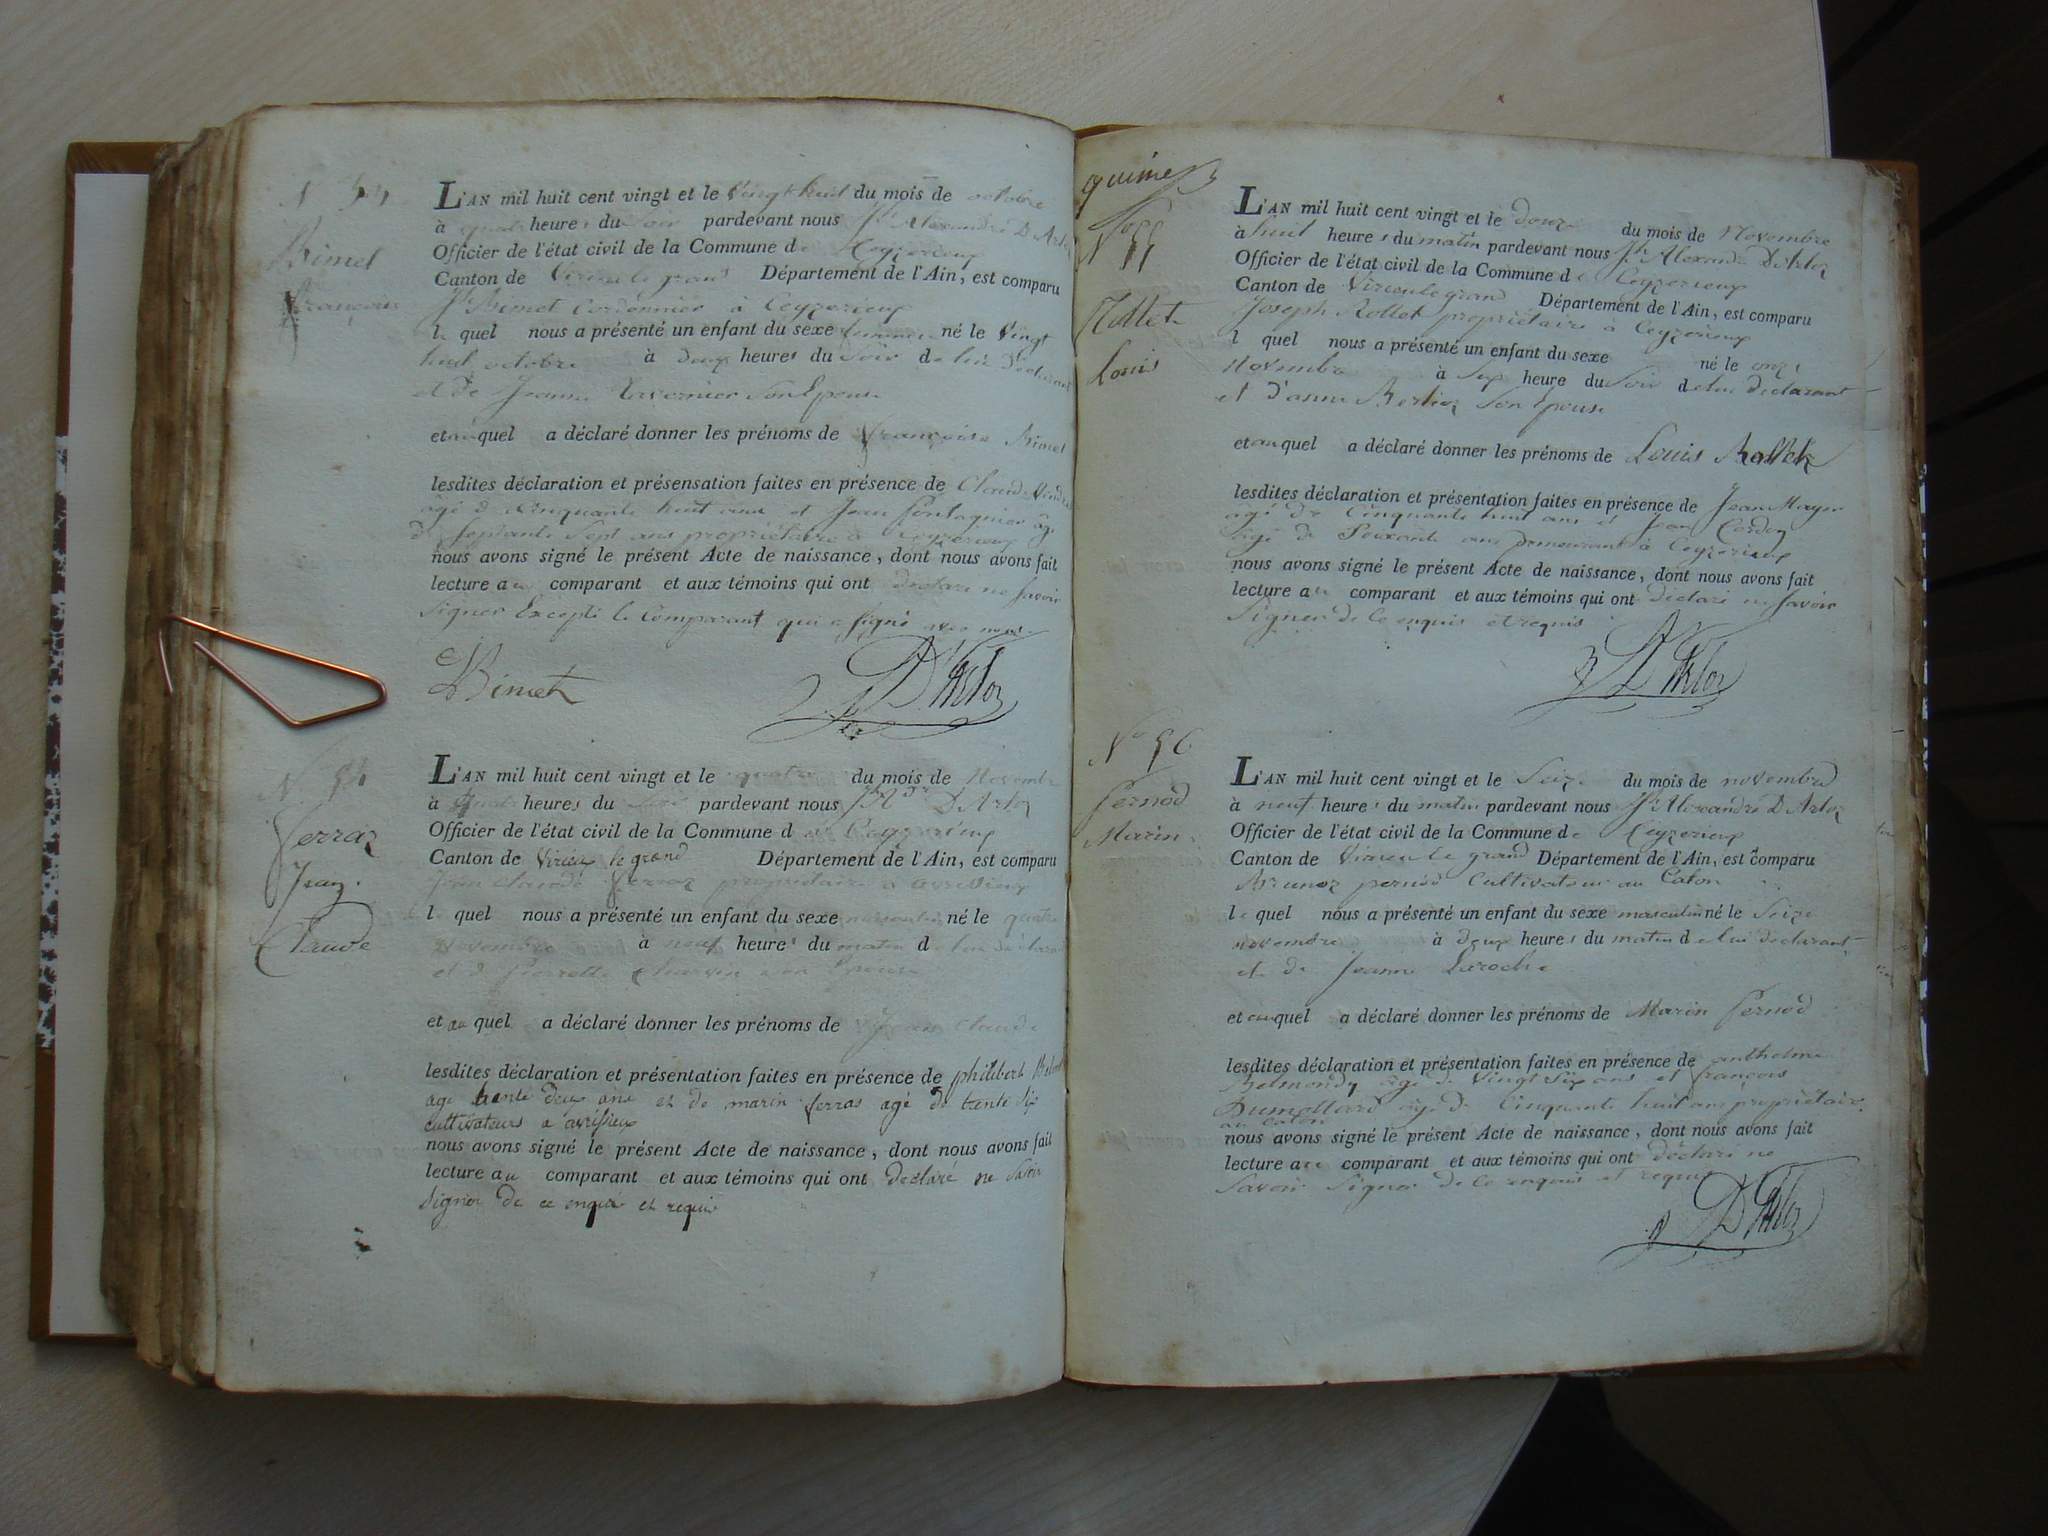 Bimet
françoise
L'AN mil huit cent vingt et le vingt huit du mois de octobre
à quatre heures du soir pardevant nous Jh Alexandre D'Arloz
Officier de l'état civil de la Commune de Ceyzerieux
Canton de Virieu le grand Département de l'Ain, est comparu
Bimet Cordonnier à Ceyzerieux
le quel nous a présenté un enfant du sexe né le vingt
huit octobre à deux heures du soir de lui déclarant
et de Jeanne Tavernier Son Epouse
et au quel a déclaré donner les prénoms de françoise Bimet
lesdites déclaration et présensation faites en présence de Claude
âgé de Cinquante huit ans et Jean âgé
de Septante Sept ans propriétaire à Ceyzerieux
nous avons signé le présent Acte de naissance, dont nous avons fait
lecture au comparant et aux témoins qui ont déclaré ne Savoir
Signer Excepté le Comparant qui a Signé avec nous
Bimet D'Arloz
N. 54
ferraz
Jean
Claude
L'AN mil huit cent vingt et le quatre du mois de Novembre
à heures du soir pardevant nous D'Arloz
Officier de l'état civil de la Commune de Ceyzerieux
Canton de Virieu le grand Département de l'Ain, est comparu
Jean Claude ferraz propriétaire a avrissieux
le quel nous a présenté un enfant du sexe masculin né le quatre
Novembre à neuf heures du matin de lui déclarant
et de Pierrette Charvin son Epouse
et au quel a déclaré donner les prénoms de Jean Claude
lesdites déclaration et présentation faites en présence de philibert
age trente deux ans et de marin ferras agé de trente Six
cultivateurs a avrissieux
nous avons signé le présent Acte de naissance, dont nous avons fait
lecture au comparant et aux témoins qui ont declaré ne Savoir
Signer de ce enquis et requis
N° 55
Rollet
Louis
L'AN mil huit cent vingt et le douze du mois de Novembre
à huit heures du matin pardevant nous Jh Alexandre D'Arloz
Officier de l'état civil de la Commune de Ceyzerieux
Canton de Virieu le grand Département de l'Ain, est comparu
Joseph Rollet propriétaire à Ceyzerieux
l quel nous a présenté un enfant du sexe né le onze
Novembre à Six heure du Soir de lui déclarant
et d'anne Berlioz Son Epouse
et au quel a déclaré donner les prénoms de Louis Rollet
lesdites déclaration et présentation faites en présence de Jean Mayer
agé de Cinquante huit ans et Jean Cerdon
agé de Soixante ans demeurant à Ceyzerieux
nous avons signé le présent Acte de naissance, dont nous avons fait
lecture au comparant et aux témoins qui ont déclaré ne Savoir
Signer de Ce enquis et requis
D'Arloz
N° 56
Pernod
Marin
L'AN mil huit cent vingt et le Seize du mois de novembre
à neuf heures du matin pardevant nous Jh Alexandre D'Arloz
Officier de l'état civil de la Commune de Ceyzerieux
Canton de Virieu le grand Département de l'Ain, est comparu
Brunoz pernod Cultivateur au Caton
le quel nous a présenté un enfant du sexe masculin né le Seize
novembre à deux heures du matin de lui declarant
et de Jeanne Laroche
et au quel a déclaré donner les prénoms de Marin Pernod
lesdites déclaration et présentation faites en présence de anthelme
Belmondy âgé de Vingt Six ans et françois
Dumollard âgé de Cinquante huit ans propriétaire
au Caton
nous avons signé le présent Acte de naissance, dont nous avons fait
lecture au comparant et aux témoins qui ont déclaré ne
Savoir Signer de Ce enquis et requis
D'Arloz